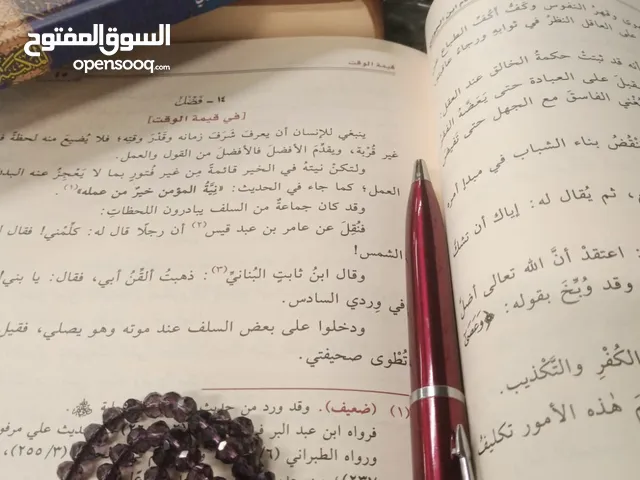 السوق المفتوح
opensooq.com
قيمة الوقت
١٤ - فَصْل
[في قيمة الوقت]
ينبغي للإنسان أن يعرفَ شَرَفَ زمانه وقَدْرَ وقتِه؛ فلا يُضيعُ منه لحظةً في
غير قُرْبة، ويقدِّمَ الأفضلَ فالأفضلَ من القول والعمل.
ولتكنْ نيتهُ في الخير قائمةً مِن غير فُتورٍ بما لا يَعْجِزُ عنه البدن
العمل؛ كما جاء في الحديث: «نِيَّةُ المؤمن خيرٌ من عمله»(١).
وقد كان جماعةٌ من السلف يبادرون اللحظاتِ:
فنُقِلَ عن عامر بن عبد قيس(٢) أن رجلًا قال له: كلِّمْني! فقال
الشمس!
وقال ابنُ ثابتٍ البُنانيِّ(٣): ذهبتُ ألقِّنُ أبي، فقال: يا بني!
في وِردي السادس.
ودخلوا على بعض السلف عند موته وهو يصلي، فقيل
تُطْوى صحيفتي.
(١) (ضعيف). وقد ورد من حديث
فرواه ابن عبد البر في
ورواه الطبراني (٦
وقهرُ النفوس وكَفُّ أكُفِّ الطباع
على العاقل النظرُ في ثوابه ورجاءُ
قد ثبتتْ حكمةُ الخالق عند العقل
على العبادة حتى يَعَضَّهُ
الفاسقَ مع الجهل حتى تَفيضَ
بناء الشباب في مبدإ أمره
ثم يُقال له: إياك أن تشكَّ
اعتقدْ أنَّ الله تعالى
وقد وُبِّخَ بقوله:
الكُفْرِ والتَّكْذيب.
هٰذه الأمور تكليفُ